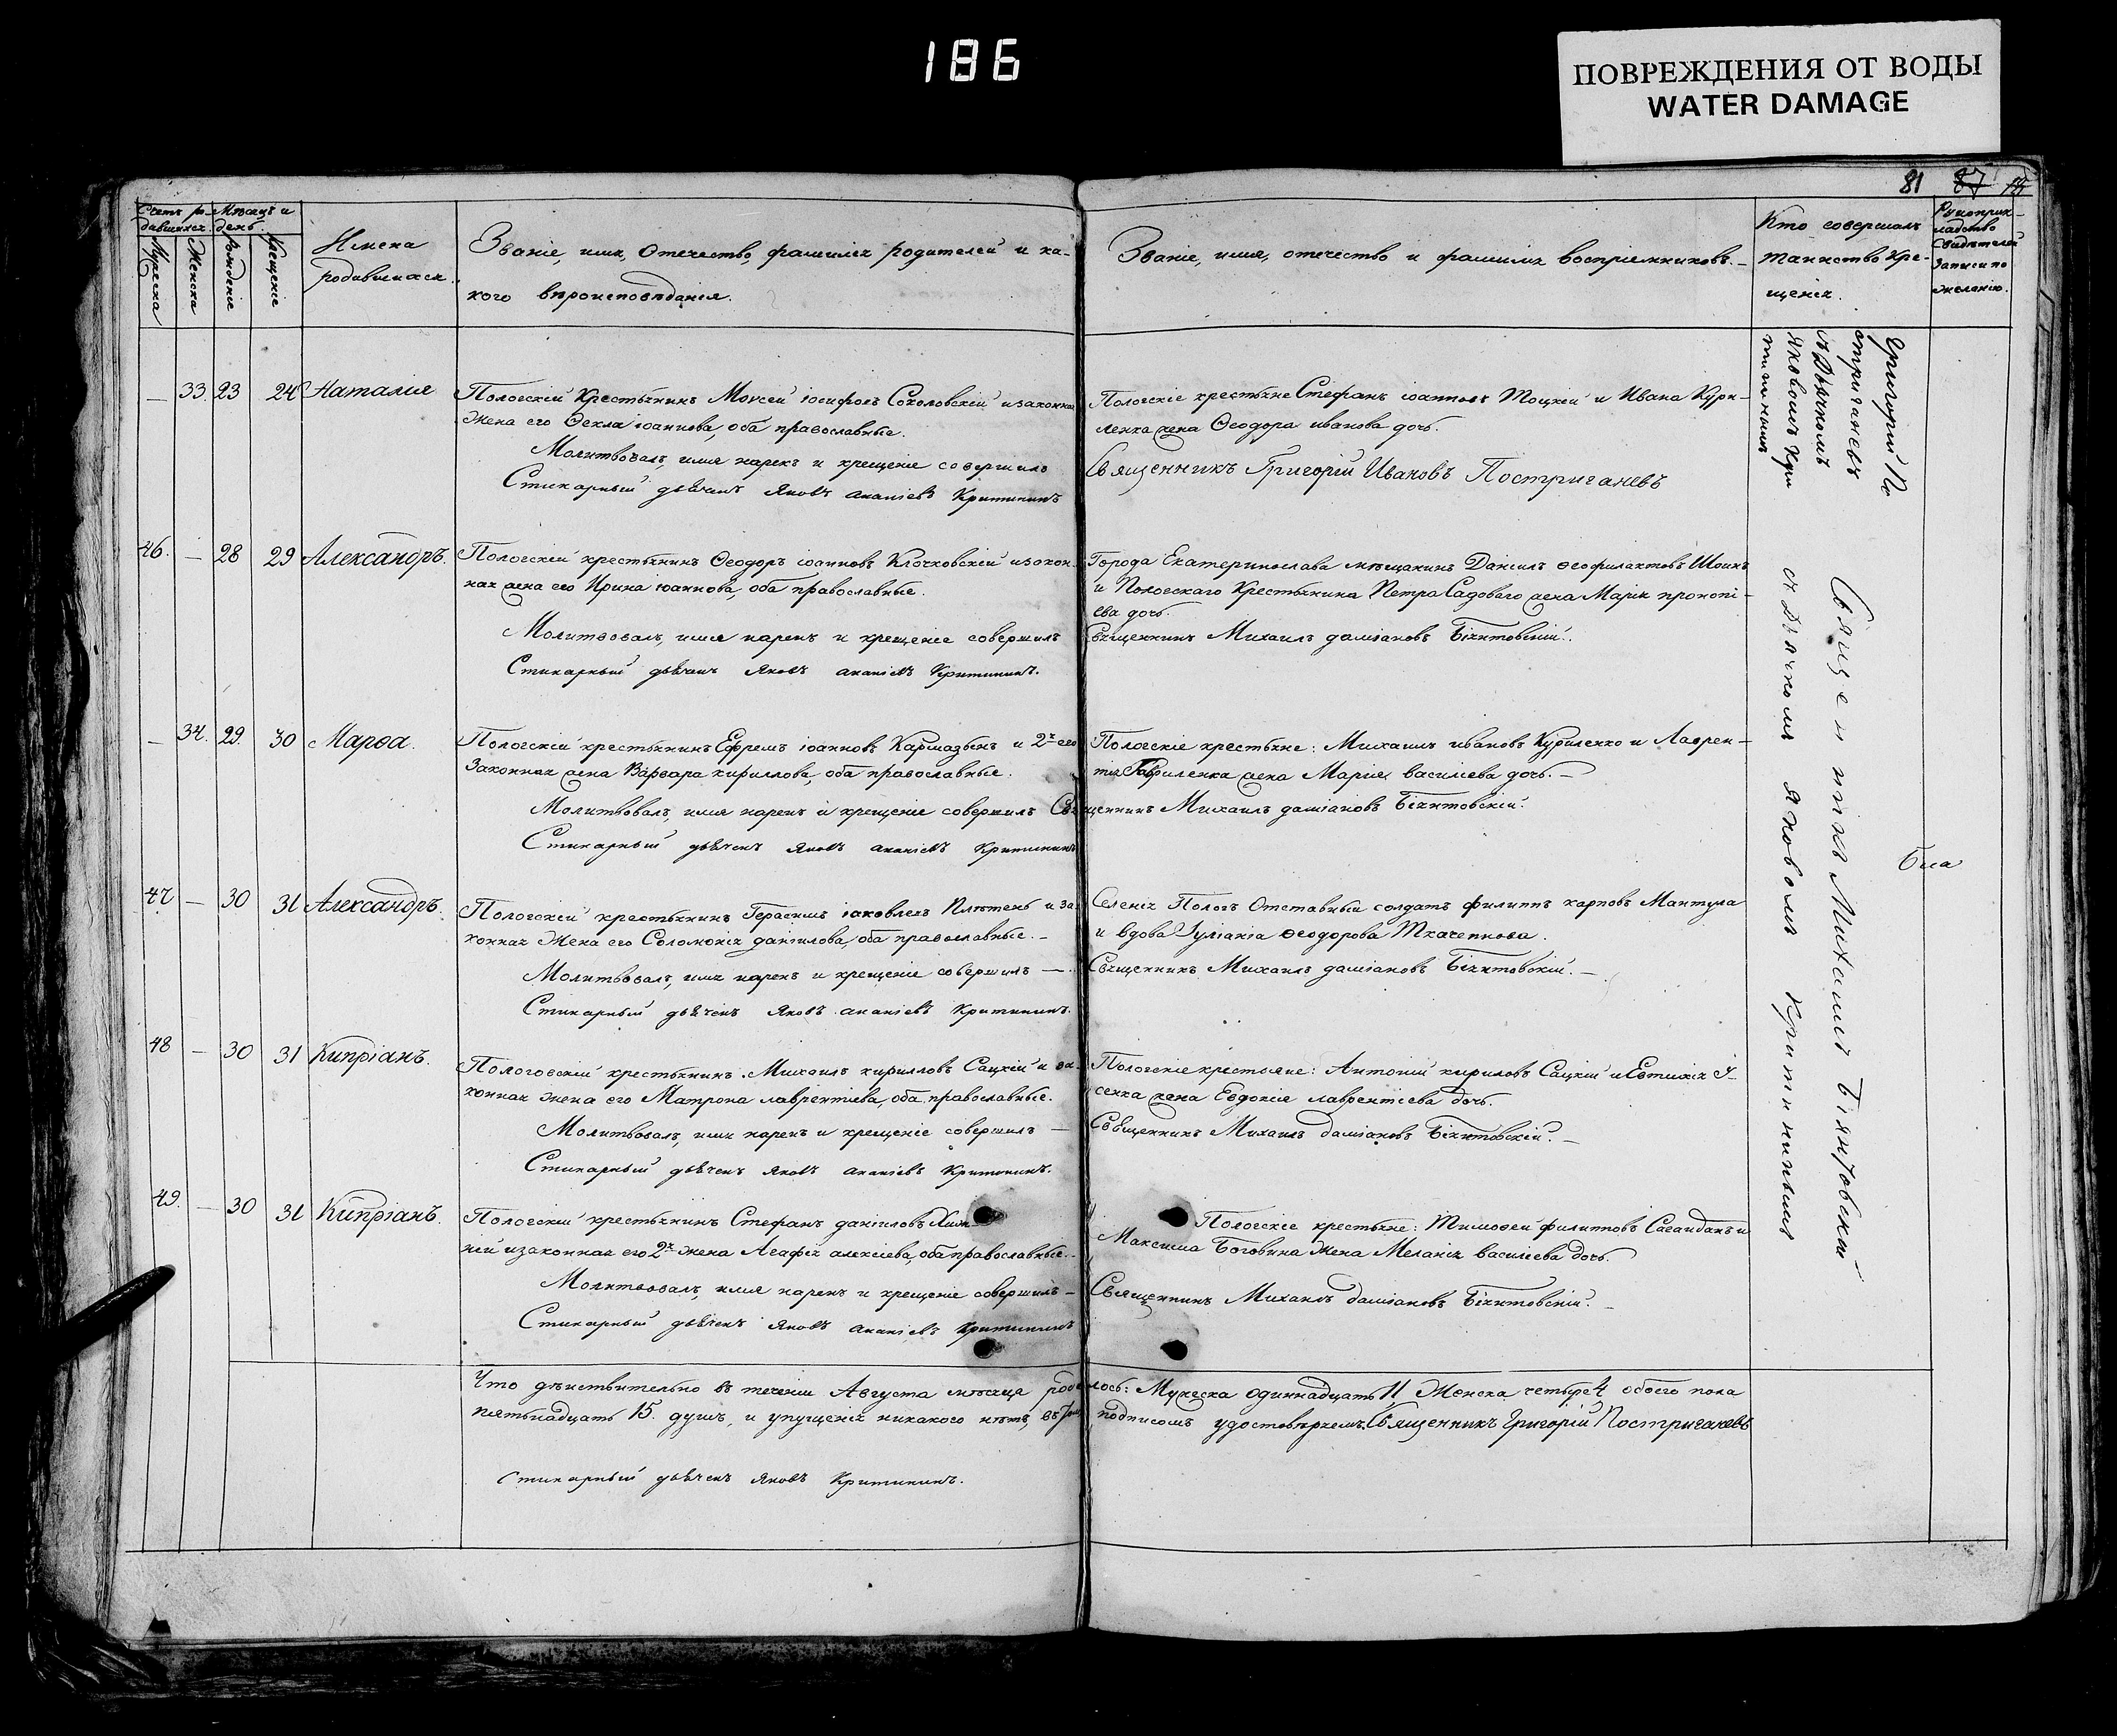 186
ПОВРЕЖДЕНИЯ ОТ ВОДЫ
WATER DAMAGE
81 87
Счетъ ро-
дившихся.
Мѣсяцъ и
день.
Мужеска
Женска
Рожденіе
Крещеніе
Имена
родившихся.
Званіе, имя, отечество, фамилія родителей и ка-
кого вѣроисповѣданія.
Званіе, имя, отечество и фамилія воспріемниковъ.
Кто совершалъ
таинство кре-
щенія.
Рукоприк-
ладство
свидѣтелей
записи по
желанію.
— 33. 23 24 Наталія
Пологскій крестьянинъ Моисей іосифовъ Соколовскій и законная
жена его Ѳекла іоаннова, оба православные.
Молитвовалъ, имя нарекъ и крещеніе совершилъ
Стихарный дьячекъ Яковъ ананіевъ Критининъ
Пологскіе крестьяне Стефанъ іоанновъ Тоцкій и Ивана Кури-
ленка жена Ѳеодора иванова дочь.
Священникъ Григорій Ивановъ Постриганевъ
Григорій По
стриганевъ
съ Дьячкомъ
Яковомъ Кри
тининымъ
46. — 28 29 Александръ.
Пологскій крестьянинъ Ѳеодоръ іоанновъ Клочковскій и закон-
ная жена его Ирина іоаннова, оба православные.
Молитвовалъ, имя нарекъ и крещеніе совершилъ
Стихарный дьячекъ Яковъ ананіевъ Критининъ.
Города Екатеринослава мѣщанинъ Даніилъ ѳеофилактовъ Шоинъ
и Пологскаго Крестьянина Петра Садоваго жена Марія прокопі-
ева дочь.
Священникъ Михаилъ даміановъ Біянтовскій.
— 34. 29. 30 Марѳа.
Пологскій крестьянинъ Ефремъ іоанновъ Кармазѣнъ и 2я его
законная жена Варвара кириллова, оба православные.
Молитвовалъ, имя нарекъ и крещеніе совершилъ Священникъ Михаилъ даміановъ Біянтовскій.
Стихарный дьячекъ Яковъ ананіевъ Критининъ
Пологскіе крестьяне: Михаилъ ивановъ Куриленко и Лаврен-
тія Гавриленка жена Марія василіева дочь. —
47 — 30 31 Александръ.
Пологскій крестьянинъ Герасимъ іаковлевъ Плѣтень и за-
конная жена его Соломонія даніилова, оба православные. —
Молитвовалъ, имя нарекъ и крещеніе совершилъ —
Стихарный дьячекъ Яковъ ананіевъ Критининъ.
Селенія Пологъ Отставный солдатъ филиппъ карповъ Мантула
и вдова Іуліанія ѳеодорова Ткаченкова.
Священникъ Михаилъ даміановъ Біянтовскій. —
48 — 30 31 Кипріанъ.
Пологовскій крестьянинъ Михаилъ кирилловъ Сацкій и за-
конная жена его Матрона лаврентіева, оба православные.
Молитвовалъ, имя нарекъ и крещеніе совершилъ —
Стихарный дьячекъ Яковъ ананіевъ Критининъ.
Пологскіе крестьяне: Антоній кириловъ Сацкій и Евтихія У-
сенка жена Евдокія лаврентіева дочь.
Священникъ Михаилъ даміановъ Біянтовскій. —
49. — 30 31 Кипріанъ.
Пологскій крестьянинъ Стефанъ даніиловъ
ній и законная его 2я жена Агафія алексіева, оба православные. —
Молитвовалъ, имя нарекъ и крещеніе совершилъ —
Стихарный дьячекъ Яковъ ананіевъ Критининъ
Пологскіе крестьяне: Тимоѳей филипповъ Сагайданъ и
Максима Боговина жена Меланія василіева дочь.
Священникъ Михаилъ даміановъ Біянтовскій. —
Священникъ Михаилъ Біянтовскій
съ Дьячкомъ Яковомъ Критининымъ
Что дѣйствительно въ теченіи Августа мѣсяца родилось: Мужеска одиннадцать 11, Женска четыре 4 обоего пола
пятьнадцать 15. душъ, и упущенія никакого нѣтъ, въ томъ подписомъ удостовѣряемъ. Священникъ Григорій Постриганевъ
Стихарный дьячекъ Яковъ Критининъ.